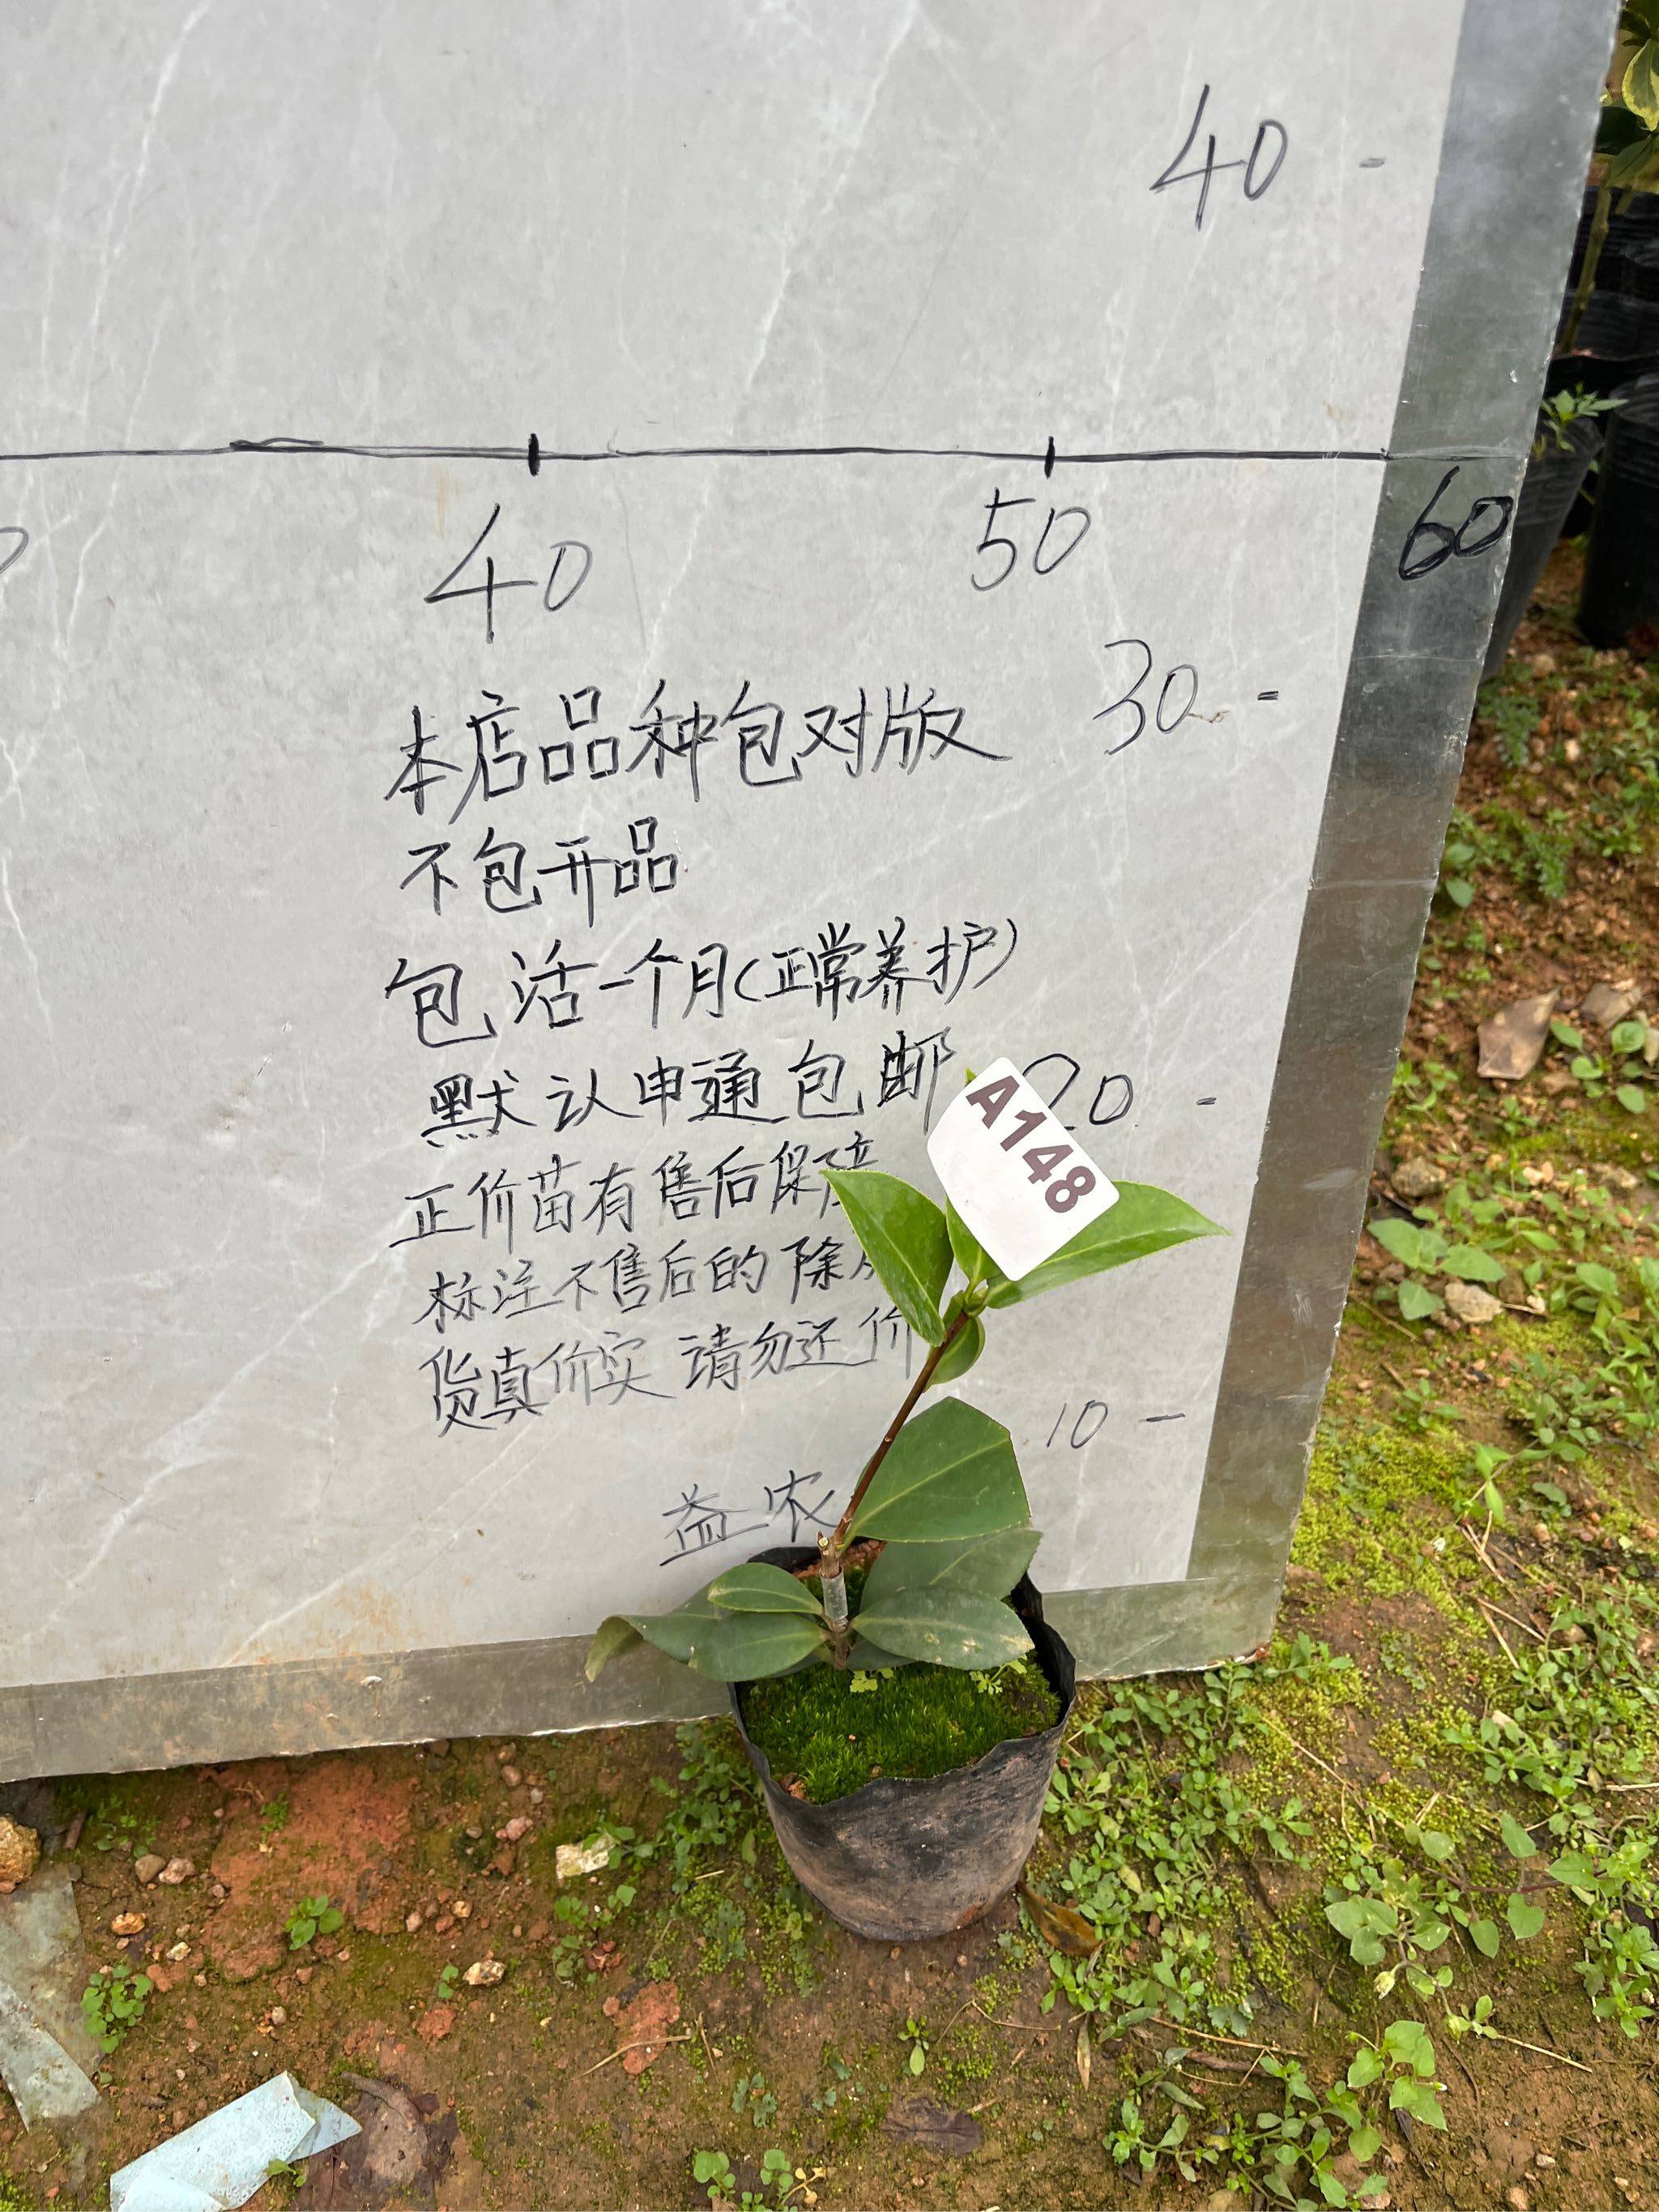 40 -
40
50
60
30 -
本店品种包对版
不包开品
包活一个月(正常养护)
默认申通包邮
20 -
A148
正价苗有售后保障
标注不售后的除
货真价实 请勿还价
10 -
益农